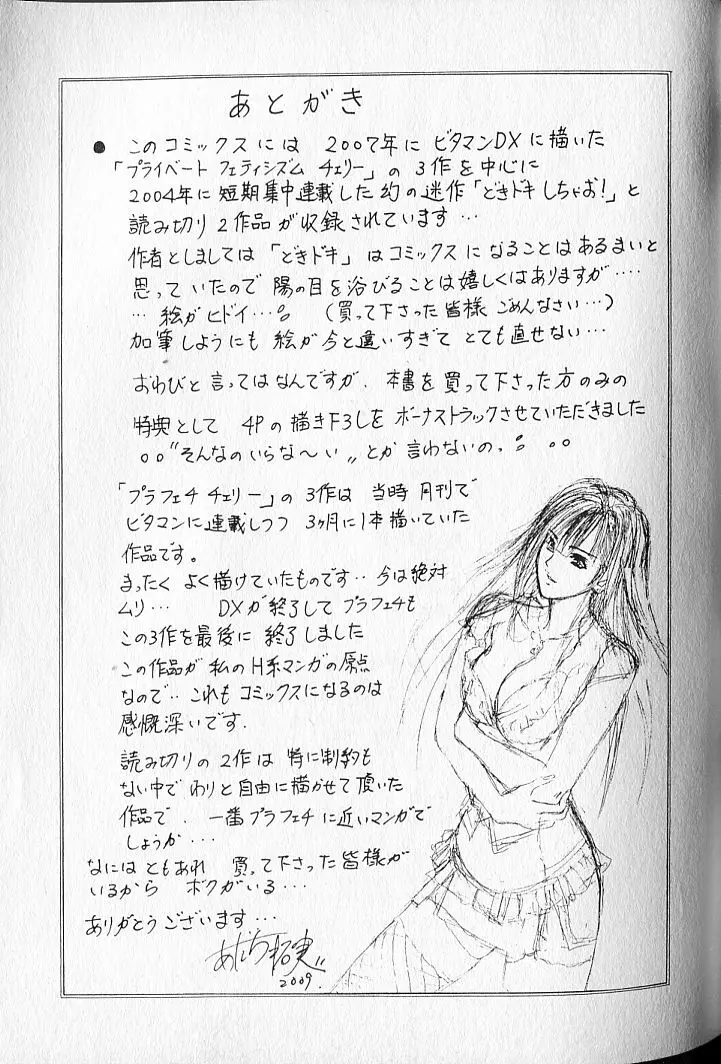 あとがき
● このコミックスには 2007年に ビタマンDXに描いた
「プライベート フェティシズム チェリー」の 3作を中心に
2004年に短期集中連載した 幻の迷作「どきドキしちゃお!」と
読み切り 2作品が収録されています…
作者としましては「どきドキ」はコミックスになることはあるまいと
思っていたので 陽の目を浴びることは嬉しくはありますが‥‥
… 絵がヒドイ…。 (買って下さった皆様 ごめんなさい…)
加筆しようにも 絵が今と違いすぎて とても直せない…
おわびと言ってはなんですが、本書を買って下さった方のみの
特典として 4Pの描き下ろしをボーナストラックさせていただきました
。。"そんなのいらな〜い〃とか 言わないの。
「プラフェチ チェリー」の 3作は 当時 月刊で
ビタマンに連載しつつ 3ヶ月に1本描いていた
作品です。
まったく よく描けていたものです‥ 今は絶対
ムリ… DXが終了して プラフェチも
この3作を最後に 終了しました
この作品が 私のH系マンガの原点
なので‥ これも コミックスになるのは
感慨深いです.
読み切りの 2作は 特に制約も
ない中で わりと自由に描かせて頂いた
作品で、一番プラフェチに近いマンガで
しょうか…
なには ともあれ 買って下さった皆様が
いるから ボクがいる…
ありがとうございます…
拓実
2009.